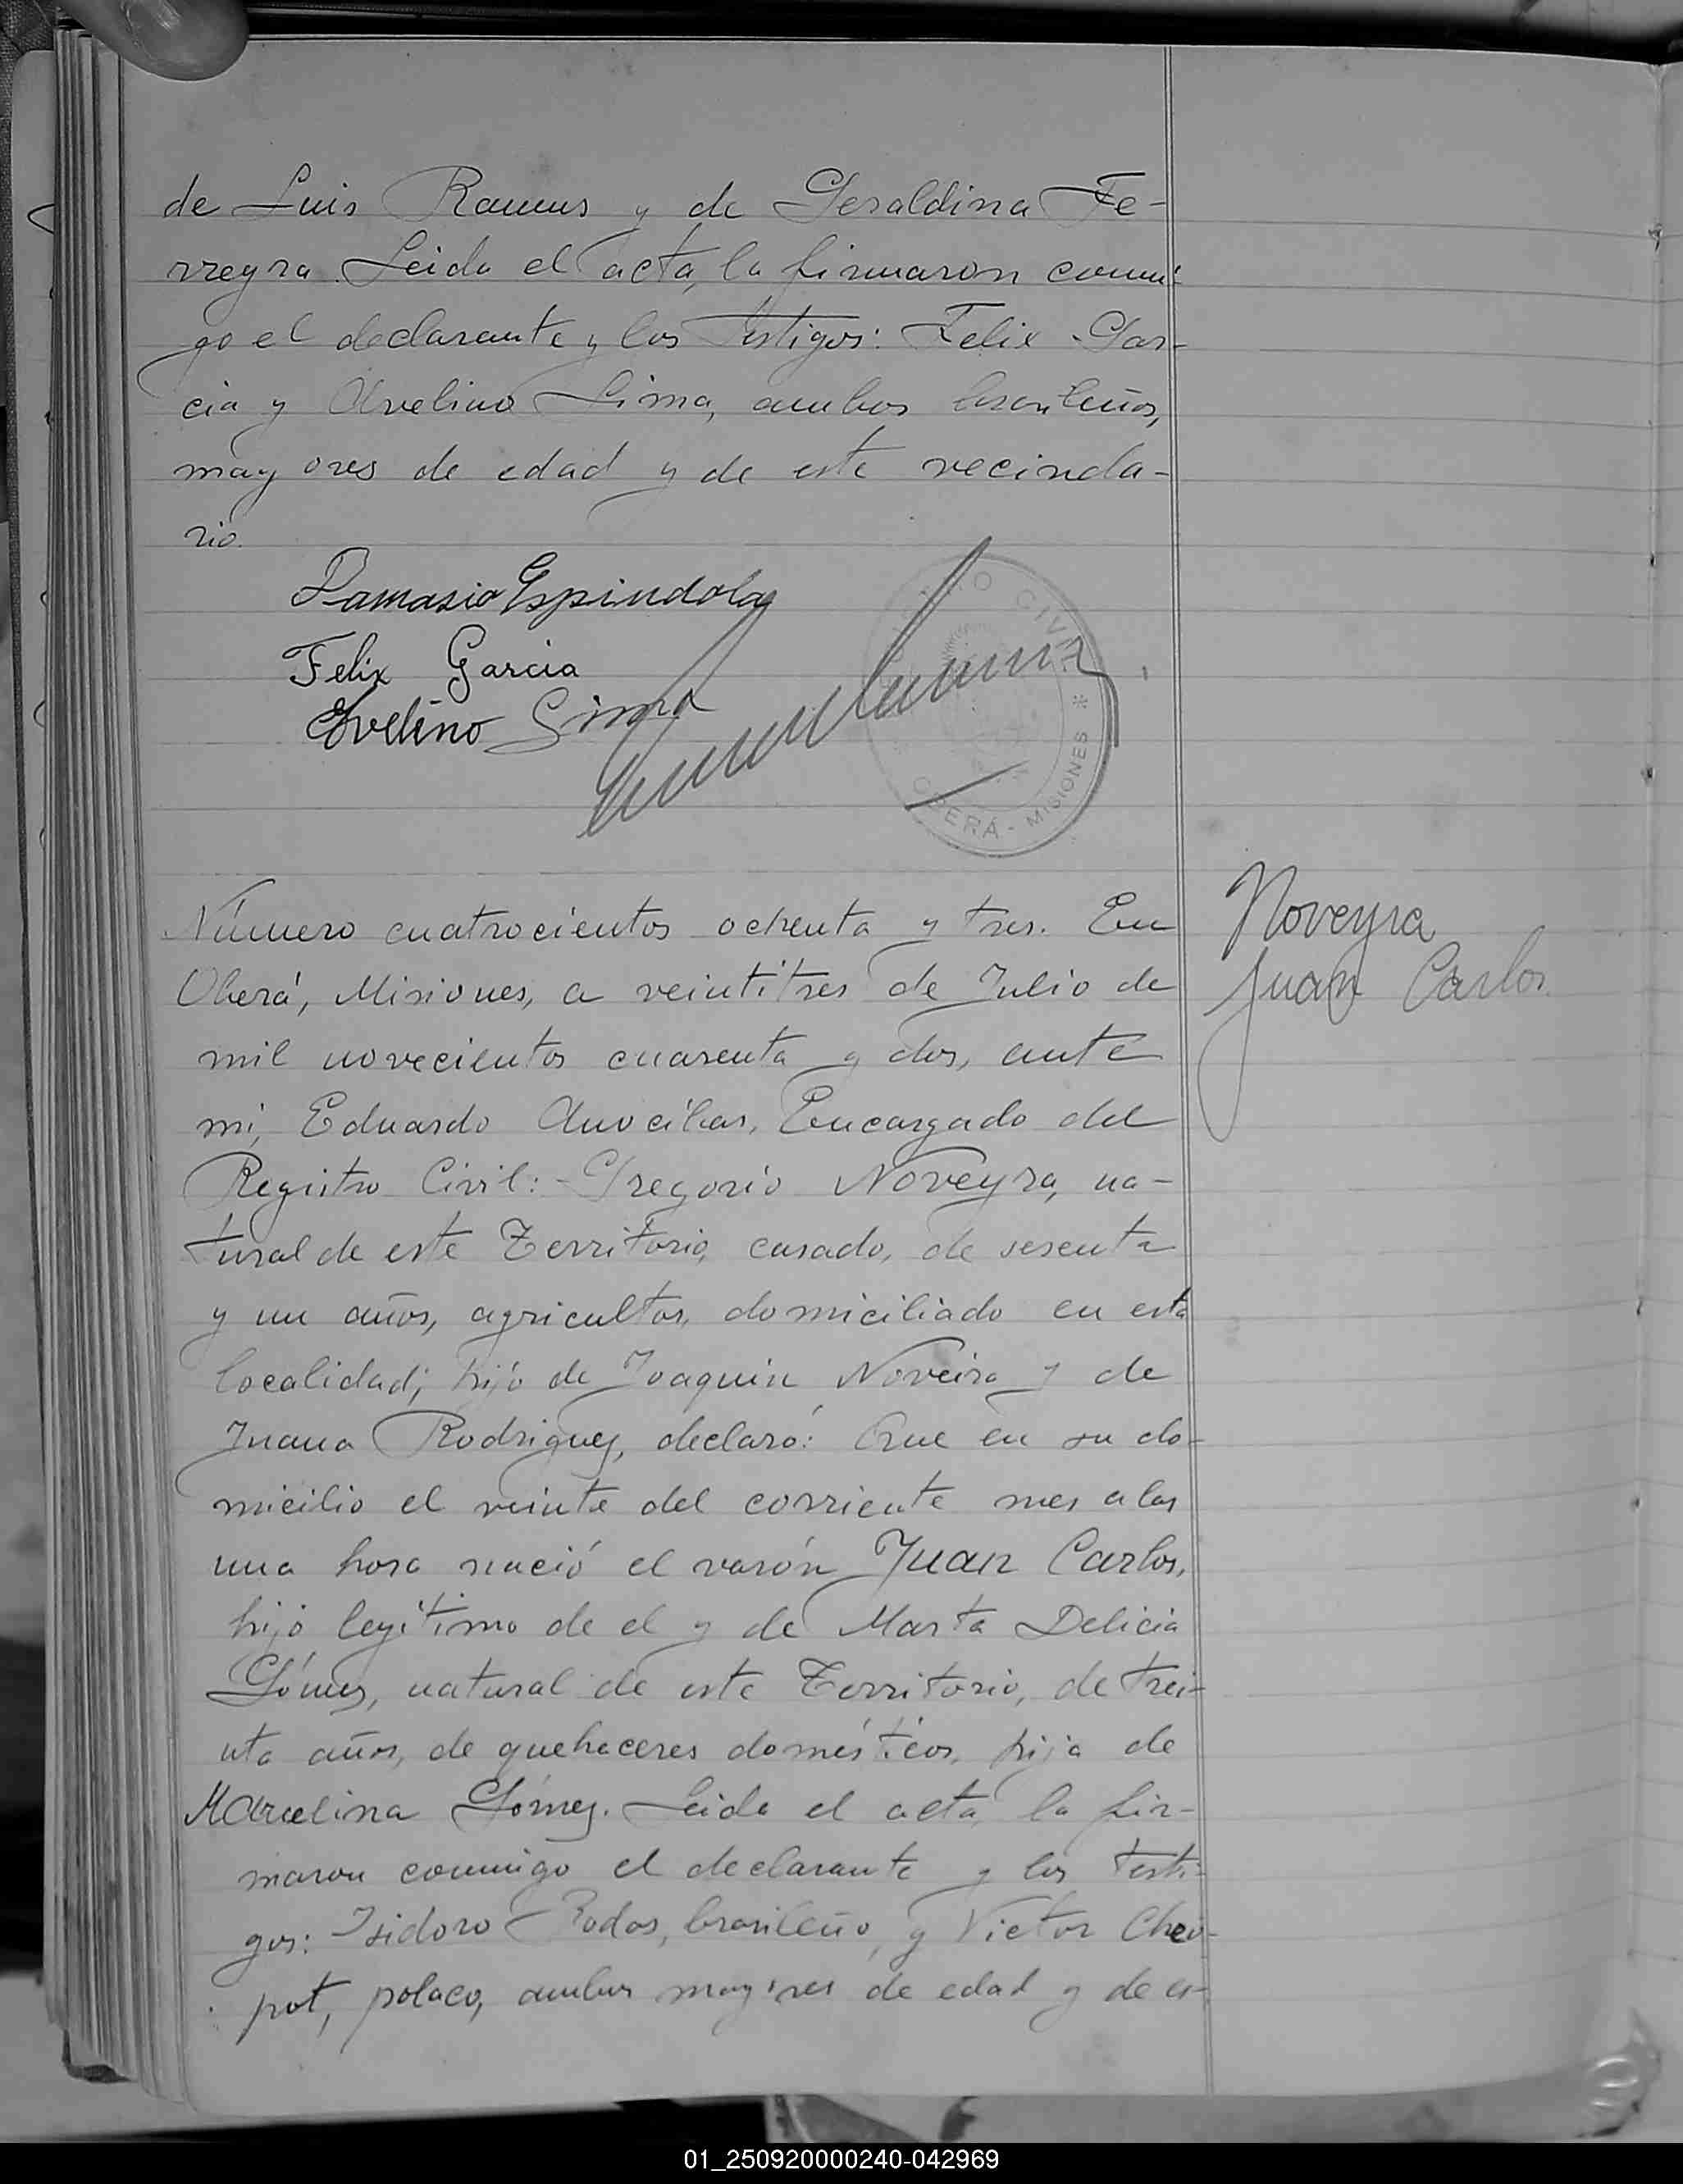 de Luis Ramus y de Geraldina Fe-
rreyra. Leida el acta, la firmaron conmi-
go el declarante y los testigos: Felix Gar-
cia y Avelino Lima, ambos brasileños,
mayores de edad y de este vecinda-
rio.
Damasio Espindola
Felix Garcia
Avelino Lima
REGISTRO CIVIL
OBERÁ - MISIONES *
Número cuatrocientos ochenta y tres. En
Oberá, Misiones, a veintitres de Julio de
mil novecientos cuarenta y dos, ante
mi, Eduardo Encargado del
Registro Civil: - Gregorio Noveyra, na-
tural de este Territorio, casado, de sesenta
y un años, agricultor, domiciliado en esta
localidad; hijo de Joaquin Noveira y de
Juana Rodriguez, declaró: Que en su do-
micilio el veinte del corriente mes a las
una hora nació el varón Juan Carlos,
hijo legítimo de el y de Marta Delicia
Gómez, natural de este Territorio, de trei-
nta años, de quehaceres domésticos, hija de
Marcelina Gómez. Leida el acta, la fir-
maron conmigo el declarante y los testi-
gos: Isidoro Rodas, brasileño, y Victor Cheo-
pot, polaco, ambos mayores de edad y de es-
Noveyra
Juan Carlos
01_250920000240-042969